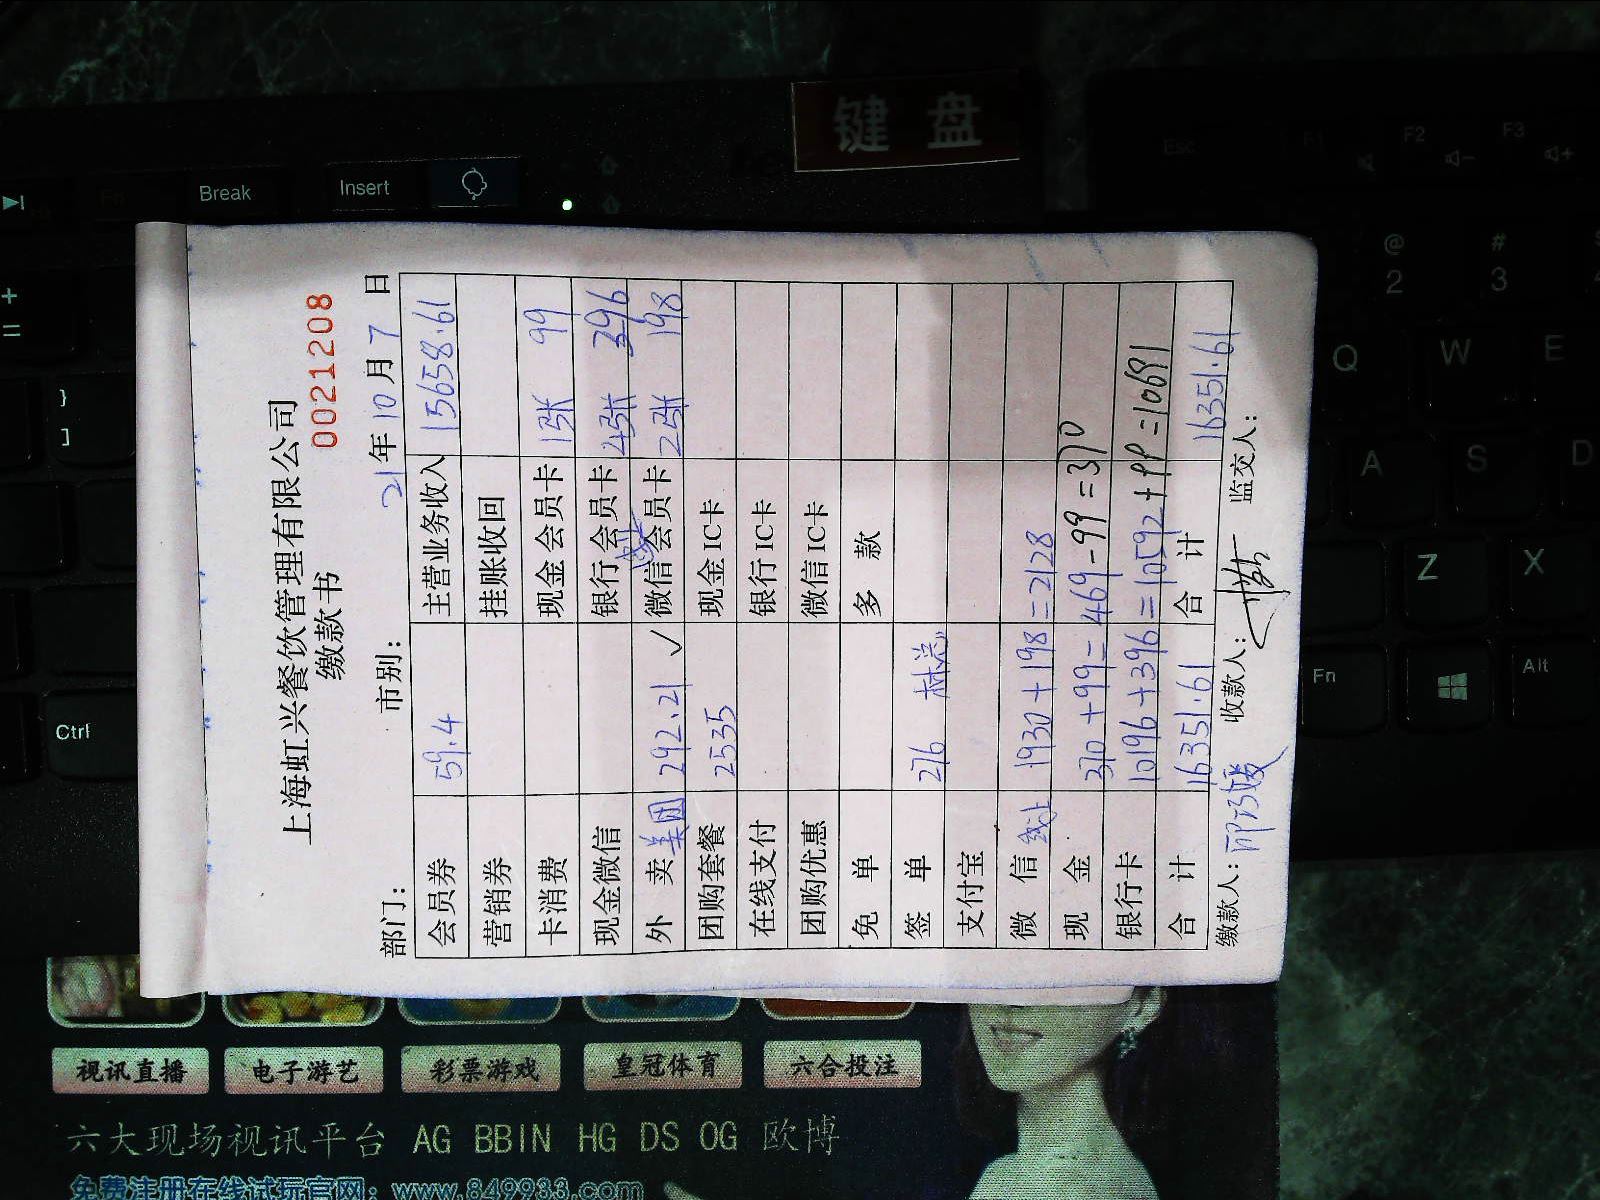 键 盘
Break
Insert
Esc
F1
F2
F3
Fn
+
=
}
]
Ctrl
@
2
#
3
Q
W
E
A
S
D
Z
X
Fn
Alt
上海虹兴餐饮管理有限公司
缴款书 0021208
部门： 市别： 21年10月7日
会员券 59.4 主营业务收入 15658.61
营销券 挂账收回
卡消费 现金会员卡 1张 99
现金微信 银行会员卡 4张 396
外 卖 美团 292.21 ✓ 微信会员卡 2张 198
团购套餐 2535 现金IC卡
在线支付 银行IC卡
团购优惠 微信IC卡
免 单 多 款
签 单 276
支付宝
微 信 线上 1930+198=2128
现 金 370+99=469-99=370
银行卡 10196+396=10592+99=10691
合 计 16351.61 合 计 16351.61
缴款人： 收款人： 监交人：
视讯直播 电子游艺 彩票游戏 皇冠体育 六合投注
六大现场视讯平台 AG BBIN HG DS OG 欧博
免费注册在线试玩官网：www.849933.com